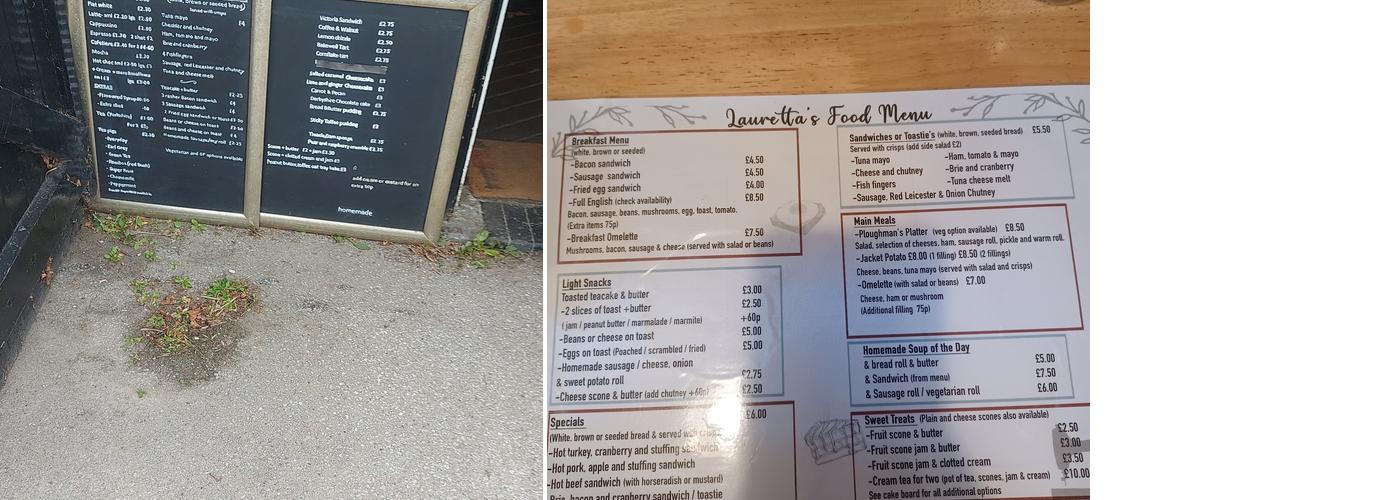 Flat white £2.80
Cappuccino
Mocha
EXTRAS
-Green Tea
-Chamomile
-Peppermint
Tuna mayo
Cheddar and chutney
Ham, tomato and mayo
Brie and cranberry
Sausage, red Leicester and chutney
Tuna and cheese melt
Teacake + butter
3 rasher Bacon sandwich
3 Sausage sandwich
Beans or cheese on toast
Beans and cheese on toast
Vegetarian and GF options available
Victoria Sandwich £2.75
Coffee & Walnut £2.75
Lemon drizzle £2.50
Bakewell Tart £2.75
Cornflake tart £2.75
Salted caramel Cheesecake £3
Lime and ginger Cheesecake £3
Carrot & Pecan £3
Derbyshire Chocolate cake £3
Bread &Butter pudding £2.75
Sticky Toffee pudding £3
Pear and raspberry crumble £2.75
add cream or custard for an
extra 50p
homemade
Lauretta's Food Menu
Breakfast Menu
(white, brown or seeded)
-Bacon sandwich £4.50
-Sausage sandwich £4.50
-Fried egg sandwich £4.00
-Full English (check availability) £8.50
Bacon, sausage, beans, mushrooms, egg, toast, tomato.
(Extra items 75p)
-Breakfast Omelette £7.50
Mushrooms, bacon, sausage & cheese (served with salad or beans)
Light Snacks
Toasted teacake & butter £3.00
-2 slices of toast +butter £2.50
( jam / peanut butter / marmalade / marmite) +60p
-Beans or cheese on toast £5.00
-Eggs on toast (Poached / scrambled / fried) £5.00
-Homemade sausage / cheese, onion
& sweet potato roll £2.75
-Cheese scone & butter (add chutney +60p) £2.50
Specials £6.00
(White, brown or seeded bread & served with crisps
-Hot turkey, cranberry and stuffing sandwich
-Hot pork, apple and stuffing sandwich
-Hot beef sandwich (with horseradish or mustard)
Brie, bacon and cranberry sandwich / toastie
Sandwiches or Toastie's (white, brown, seeded bread) £5.50
Served with crisps (add side salad £2)
-Tuna mayo -Ham, tomato & mayo
-Cheese and chutney -Brie and cranberry
-Fish fingers -Tuna cheese melt
-Sausage, Red Leicester & Onion Chutney
Main Meals
-Ploughman's Platter (veg option available) £8.50
Salad, selection of cheeses, ham, sausage roll, pickle and warm roll.
-Jacket Potato £8.00 (1 filling) £8.50 (2 fillings)
Cheese, beans, tuna mayo (served with salad and crisps)
-Omelette (with salad or beans) £7.00
Cheese, ham or mushroom
(Additional filling 75p)
Homemade Soup of the Day
& bread roll & butter £5.00
& Sandwich (from menu) £7.50
& Sausage roll / vegetarian roll £6.00
Sweet Treats (Plain and cheese scones also available)
-Fruit scone & butter £2.50
-Fruit scone jam & butter £3.00
-Fruit scone jam & clotted cream £3.50
-Cream tea for two (pot of tea, scones, jam & cream) £10.00
See cake board for all additional options